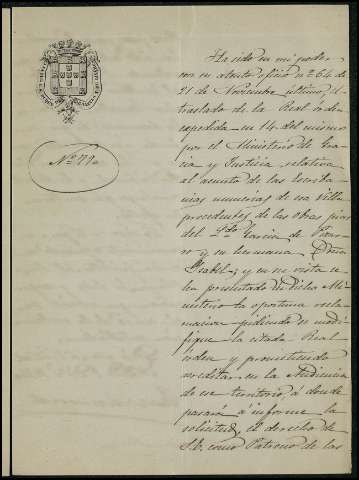 Nº 79.
Ha sido en mi poder
con su atento oficio nº 64 de
21 de Noviembre último, el
traslado de la Real orden
expedida en 14 del mismo
por el Ministerio de Gra-
cia y Justicia, relativa
al asunto de las Escriba-
nias numerias de esa Villa
procedentes de las obras pias
del Ldo Garcia de
y su hermana Doña
Isabel; y en su vista se
ha presentado en dicho Mi-
nisterio la oportuna recla-
macion pidiendo se modi-
fique la citada Real
orden y prometiendo
acreditar en la Audiencia
de ese territorio, á donde
pasará á informe la
solicitud, el derecho de
S.E. como Patrono de las